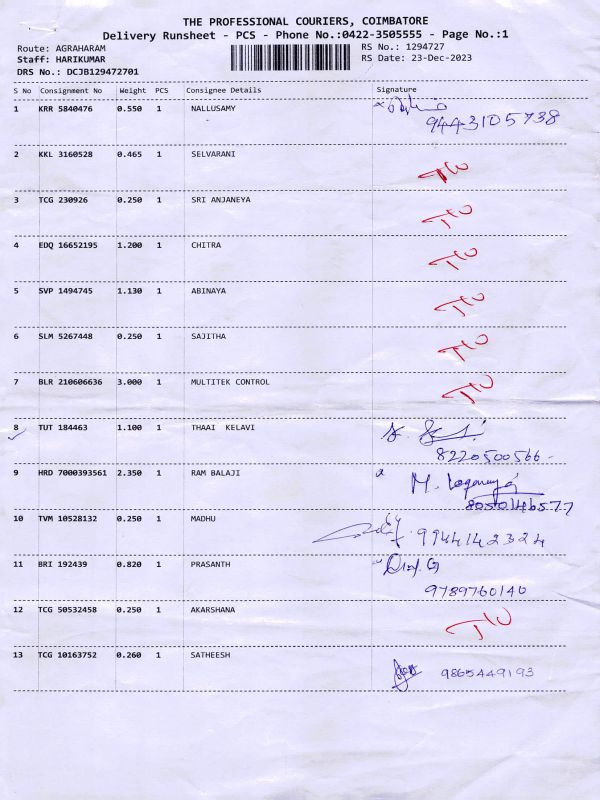 THE PROFESSIONAL COURIERS, COIMBATORE
Delivery Runsheet - PCS - Phone No.:0422-3505555 - Page No.:1
Route: AGRAHARAM
RS No.: 1294727
Staff: HARIKUMAR
RS Date: 23-Dec-2023
DRS No.: DCJB129472701
S No Consignment No Weight PCS Consignee Details Signature
1 KRR 5840476 0.550 1 NALLUSAMY
9443105738
2 KKL 3160528 0.465 1 SELVARANI
3 TCG 230926 0.250 1 SRI ANJANEYA
4 EDQ 16652195 1.200 1 CHITRA
5 SVP 1494745 1.130 1 ABINAYA
6 SLM 5267448 0.250 1 SAJITHA
7 BLR 210606636 3.000 1 MULTITEK CONTROL
8 TUT 184463 1.100 1 THAAI KELAVI
8220500566
9 HRD 7000393561 2.350 1 RAM BALAJI
8050146577
10 TVM 10528132 0.250 1 MADHU
9944142324
11 BRI 192439 0.820 1 PRASANTH
9789760140
12 TCG 50532458 0.250 1 AKARSHANA
13 TCG 10163752 0.260 1 SATHEESH
9865449193